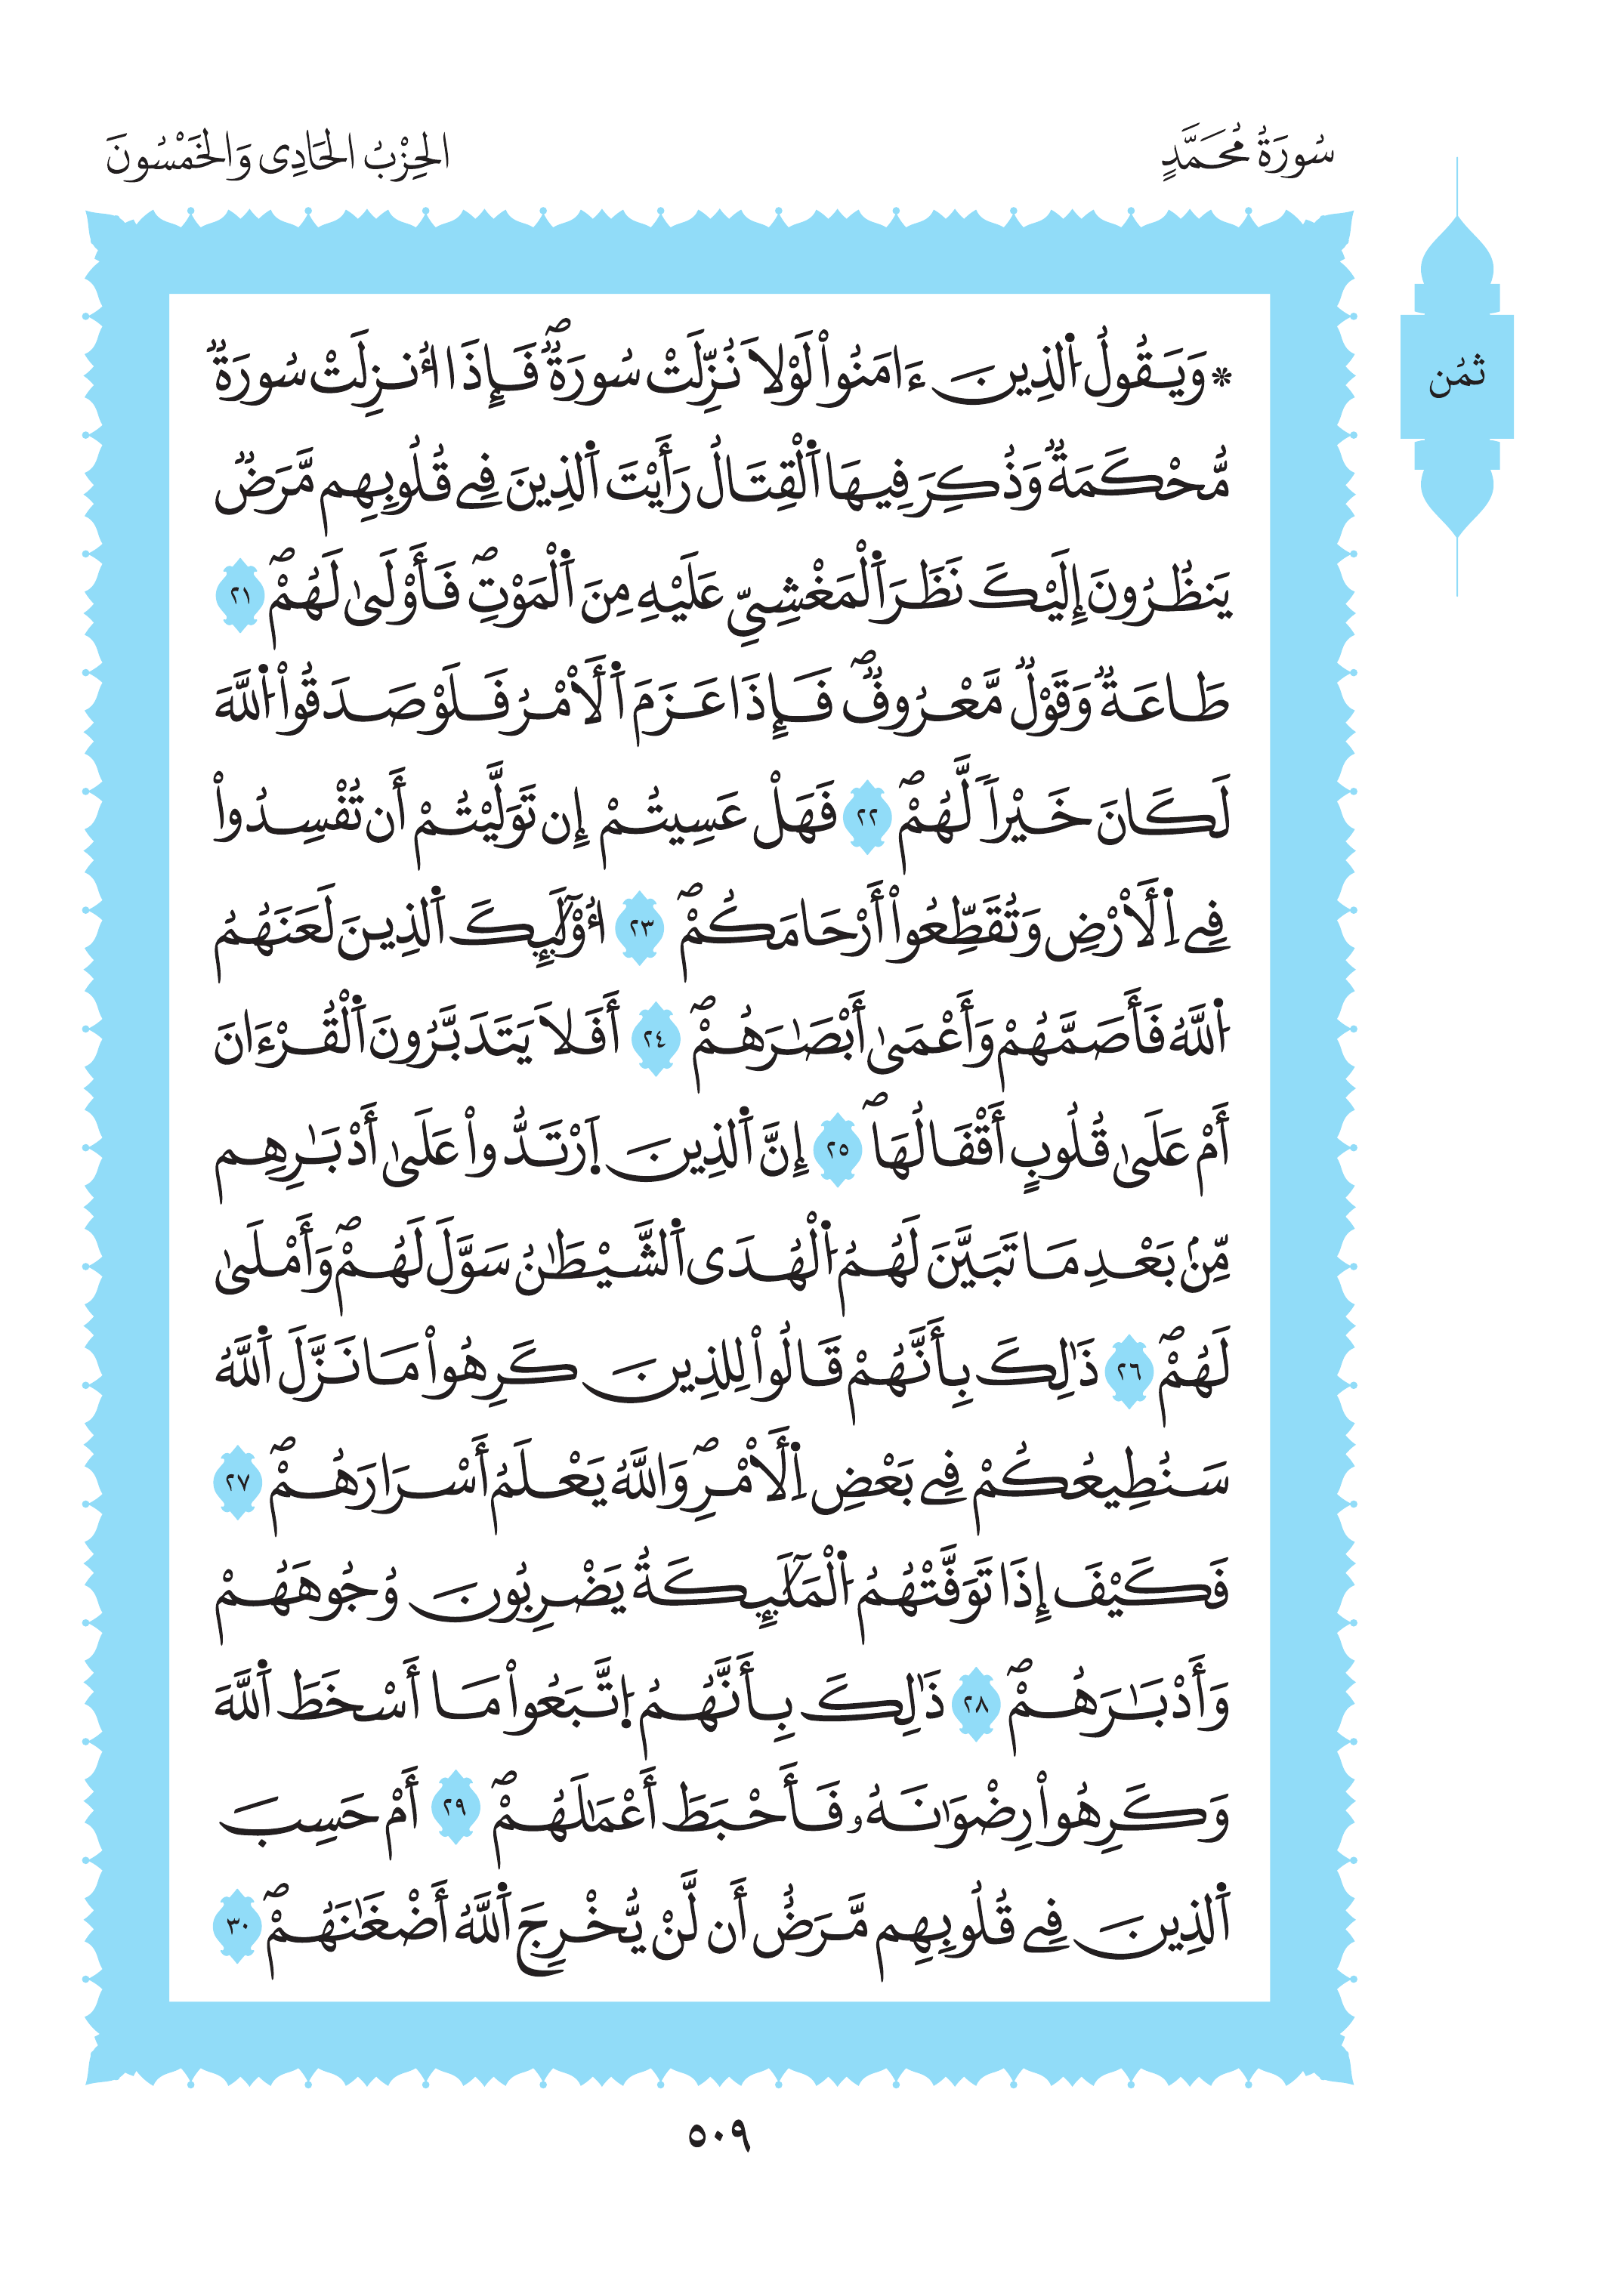 سُورَةُ مُحَمَّدٍ
الحِزْبُ الحَادِى وَالخَمْسُونَ
ثمُن
* وَيَقُولُ اُ۬لذِينَ ءَامَنُواْ لَوْلَا نُزِّلَتْ سُورَةٞۖ فَإِذَا أُنزِلَتْ سُورَةٞ
مُّحْكَمَةٞ وَذُكِرَ فِيهَا اَ۬لْقِتَالُ رَأَيْتَ اَ۬لذِينَ فِے قُلُوبِهِم مَّرَضٞ
يَنظُرُونَ إِلَيْكَ نَظَرَ اَ۬لْمَغْشِيِّ عَلَيْهِ مِنَ اَ۬لْمَوْتِۖ فَأَوْلَىٰ لَهُمْۖ ٢١
طَاعَةٞ وَقَوْلٞ مَّعْرُوفٞۖ فَإِذَا عَزَمَ اَ۬لَامْرُ فَلَوْ صَدَقُواْ اُ۬للَّهَ
لَكَانَ خَيْراٗ لَّهُمْۖ ٢٢ فَهَلْ عَسِيتُمْ إِن تَوَلَّيْتُمْ أَن تُفْسِدُواْ
فِے اِ۬لَارْضِ وَتُقَطِّعُواْ أَرْحَامَكُمْۖ ٢٣ أُوْلَٰٓئِكَ اَ۬لذِينَ لَعَنَهُمُ
اُ۬للَّهُ فَأَصَمَّهُمْ وَأَعْمَىٰ أَبْصَٰرَهُمْۖ ٢٤ أَفَلَا يَتَدَبَّرُونَ اَ۬لْقُرْءَانَ
أَمْ عَلَىٰ قُلُوبٍ أَقْفَالُهَاۖ ٢٥ إِنَّ اَ۬لذِينَ اَ۪رْتَدُّواْ عَلَىٰ أَدْبَٰرِهِم
مِّنۢ بَعْدِ مَا تَبَيَّنَ لَهُمُ اُ۬لْهُدَى اَ۬لشَّيْطَٰنُ سَوَّلَ لَهُمْۖ وَأَمْلَىٰ
لَهُمْۖ ٢٦ ذَٰلِكَ بِأَنَّهُمْ قَالُواْ لِلذِينَ كَرِهُواْ مَا نَزَّلَ اَ۬للَّهُ
سَنُطِيعُكُمْ فِے بَعْضِ اِ۬لَامْرِۖ وَاللَّهُ يَعْلَمُ أَسْرَارَهُمْۖ ٢٧
فَكَيْفَ إِذَا تَوَفَّتْهُمُ اُ۬لْمَلَٰٓئِكَةُ يَضْرِبُونَ وُجُوهَهُمْ
وَأَدْبَٰرَهُمْۖ ٢٨ ذَٰلِكَ بِأَنَّهُمُ اُ۪تَّبَعُواْ مَا أَسْخَطَ اَ۬للَّهَ
وَكَرِهُواْ رِضْوَٰنَهُۥ فَأَحْبَطَ أَعْمَٰلَهُمْۖ ٢٩ أَمْ حَسِبَ
اَ۬لذِينَ فِے قُلُوبِهِم مَّرَضٌ أَن لَّنْ يُّخْرِجَ اَ۬للَّهُ أَضْغَٰنَهُمْۖ ٣٠
٥٠٩